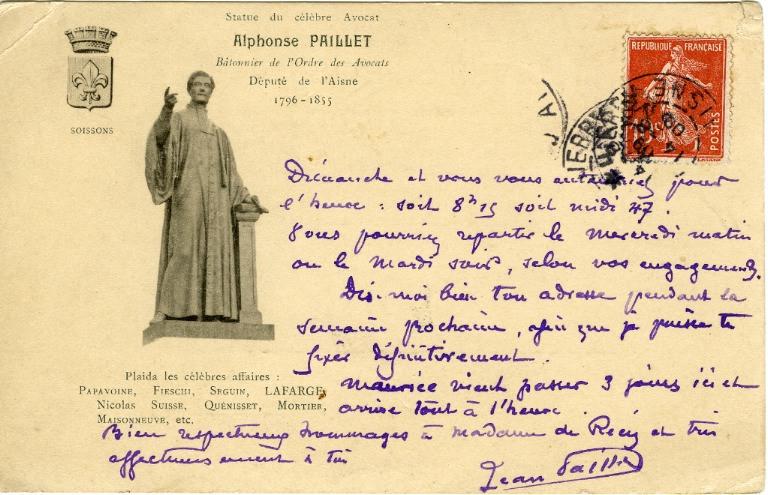 Statue du célèbre Avocat
Alphonse PAILLET
Bâtonnier de l'Ordre des Avocats
Député de l'Aisne
1796-1855
SOISSONS
REPUBLIQUE FRANÇAISE
POSTES
Dimanche et vous vous pour
l'heure : soit 8h15 soit midi 47.
Vous pourriez repartir le mercredi matin
ou le Mardi soir, selon vos engagements.
Dis-moi bien ton adresse pendant la
semaine prochaine, afin que je puisse te
fixer définitivement.
Maurice vient passer 3 jours ici et
arrive tout à l'heure.
Plaida les célèbres affaires :
PAPAVOINE, FIESCHI, SEGUIN, LAFARGE,
Nicolas SUISSE, QUÉNISSET, MORTIER,
MAISONNEUVE, etc.
Bien respectueux hommages à Madame de et très
affectueusement à toi
Jean Paillet